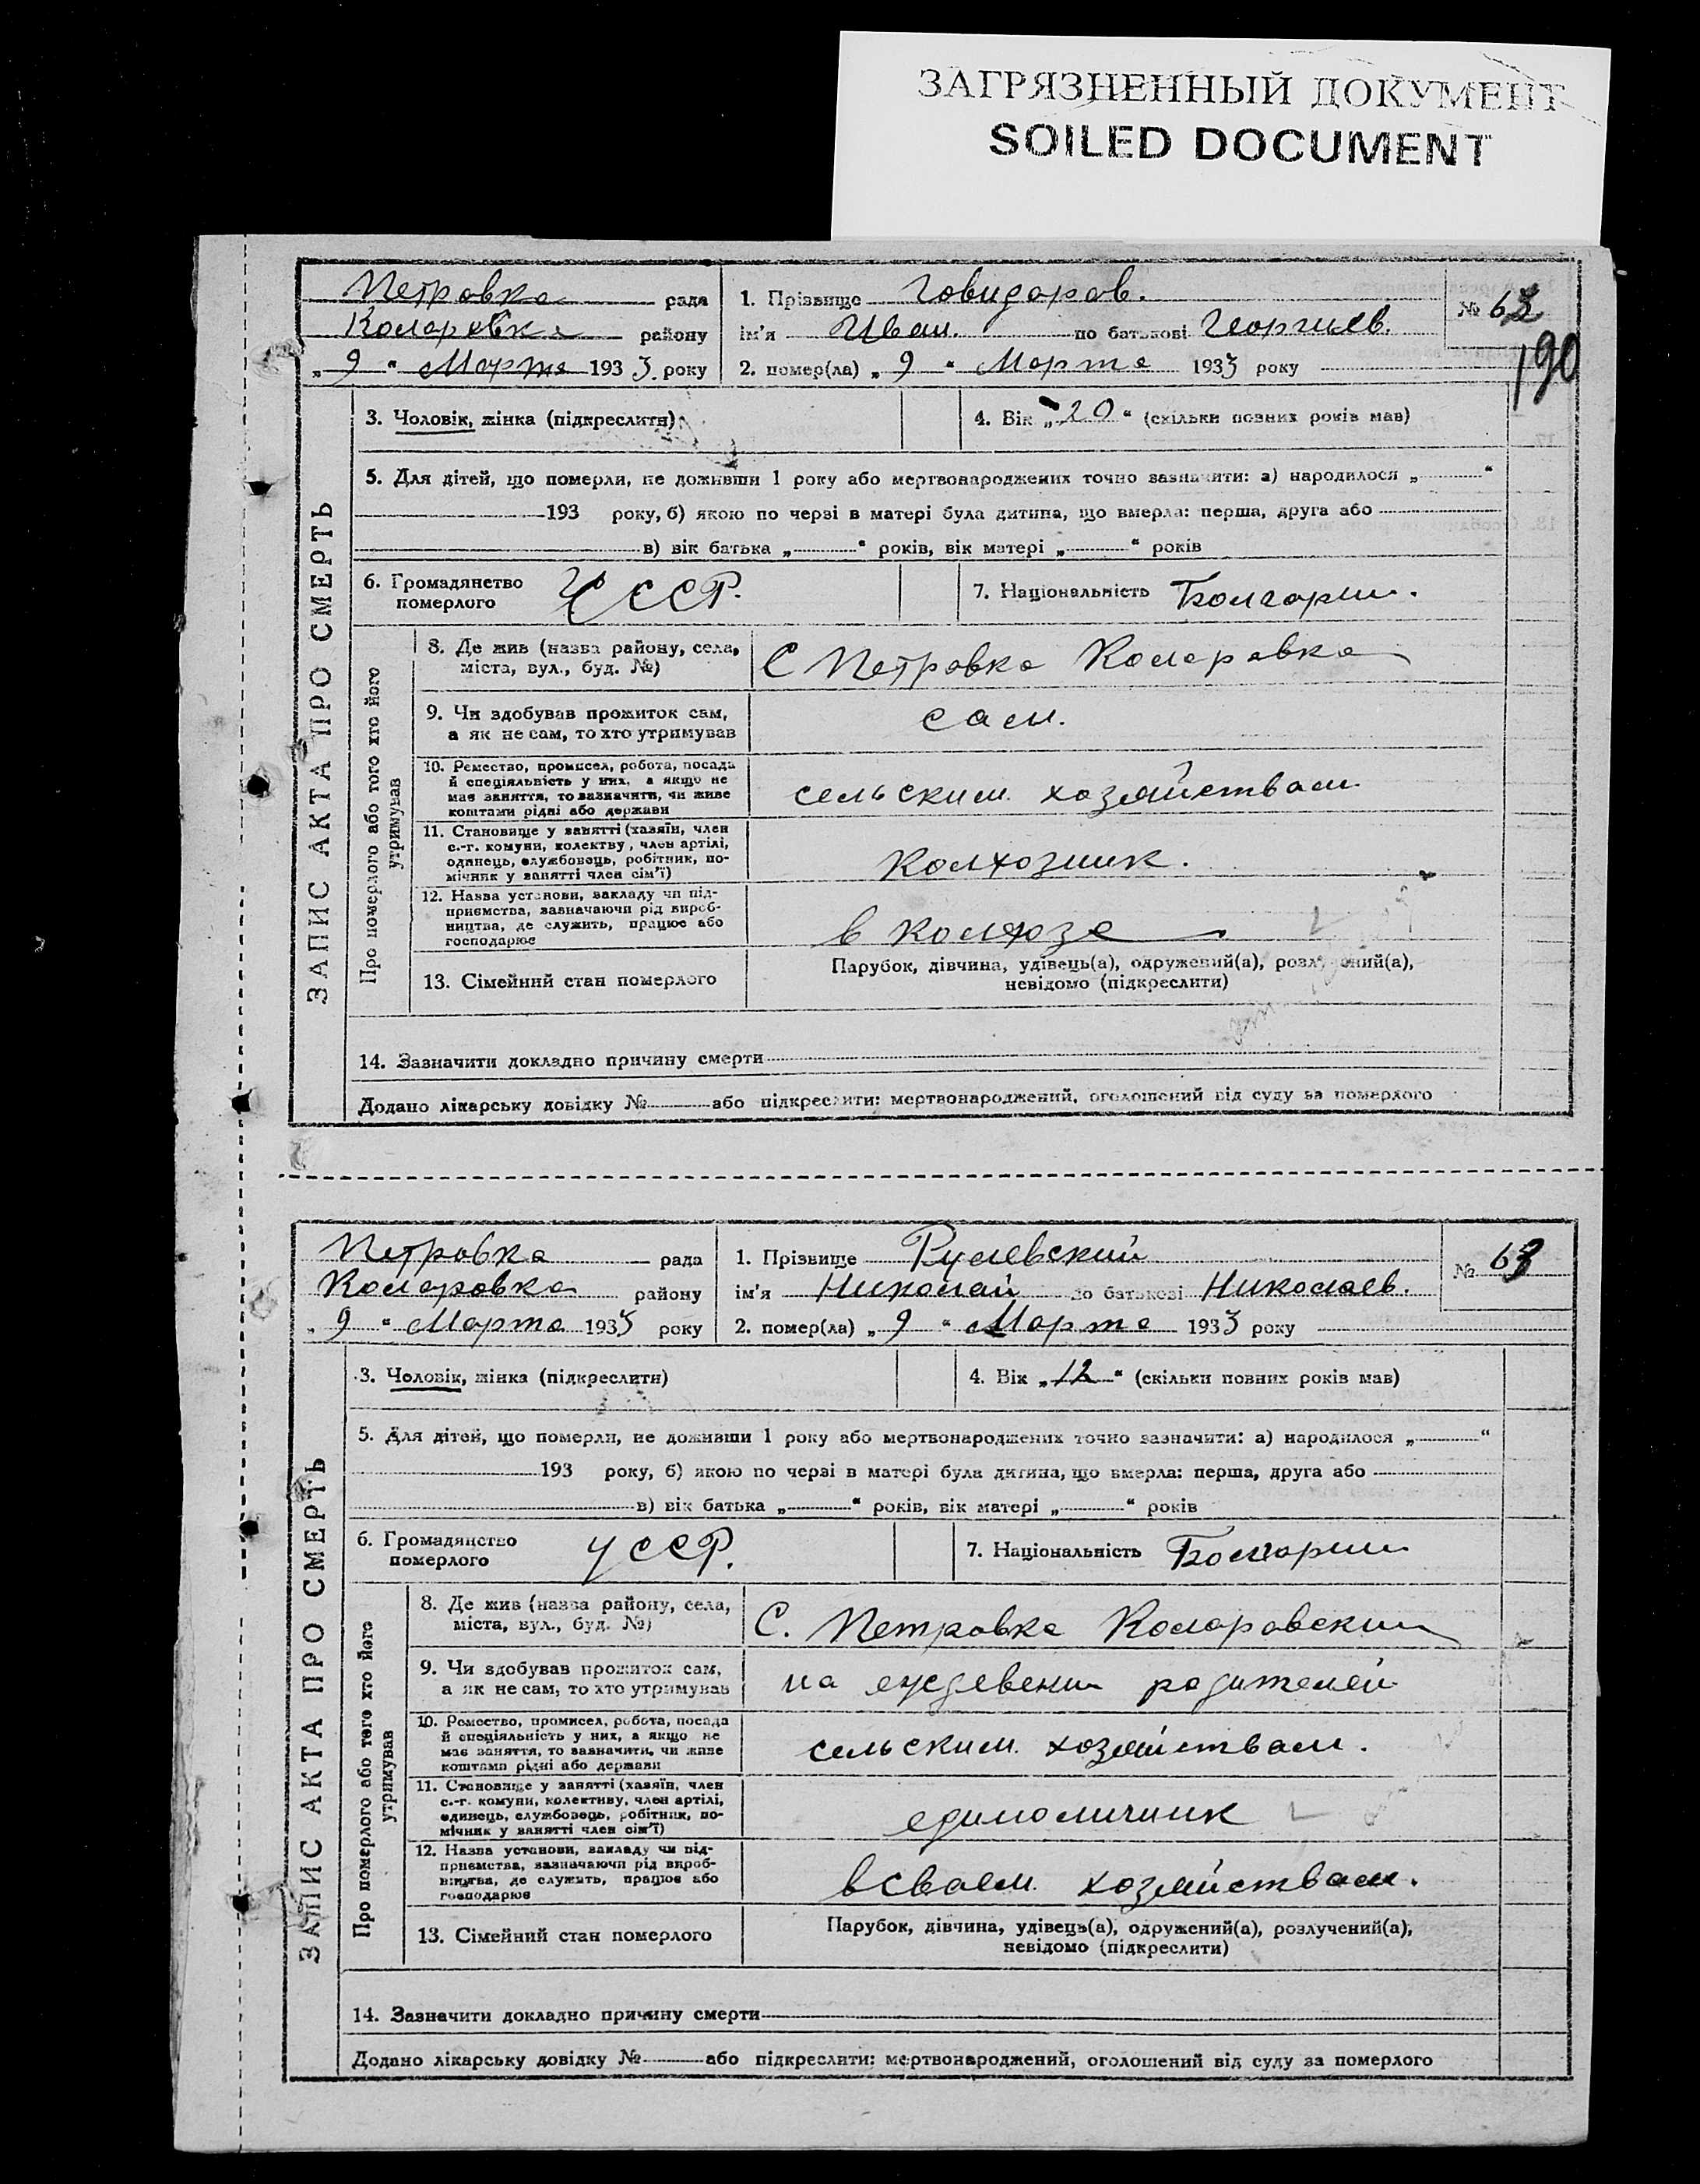 ЗАГРЯЗНЕННЫЙ ДОКУМЕНТ
SOILED DOCUMENT
Петровка рада
Коларовка району
„9“ Марта 1933. року
1. Прізвище Говидаров.
ім'я Иван. по батькові Георгиев.
2. помер(ла) „9“ Марта 1933 року
№ 62
190
ЗАПИС АКТА ПРО СМЕРТЬ
3. Чоловік, жінка (підкреслити)
4. Вік „20“ (скільки повних років мав)
5. Для дітей, що померли, не доживши 1 року або мертвонароджених точно зазначити: а) народилося „ “
193 року, б) якою по черзі в матері була дитина, що вмерла: перша, друга або
в) вік батька „ “ років, вік матері „ “ років
6. Громадянство
померлого
УССР.
7. Національність Болгарин.
Про померлого або того хто його
утримував
8. Де жив (назва району, села,
міста, вул., буд. №)
С Петровка Коларовка
9. Чи здобував прожиток сам,
а як не сам, то хто утримував
сам.
10. Ремество, промисел, робота, посада
й спеціяльність у них, а якщо не
має заняття, то зазначити, чи живе
коштами рідні або держави
сельским хозяйствам
11. Становище у занятті (хазяїн, член
с.-г. комуни, колектву, член артілі,
одинець, службовець, робітник, по-
мічник у занятті член сім'ї)
колхозник.
12. Назва установи, закладу чи під-
приємства, зазначаючи рід вироб-
ництва, де служить, працює або
господарює
в колхозе
13. Сімейний стан померлого
Парубок, дівчина, удівець(а), одружений(а), розл ений(а),
невідомо (підкреслити)
14. Зазначити докладно причину смерти
Додано лікарську довідку № або підкреслити: мертвонароджений, оголошений від суду за померлого
Петровка рада
Коларовка району
„9“ Марта 1933 року
1. Прізвище Рулевский
ім'я Николай по батькові Николаев.
2. помер(ла) „9“ Марта 1933 року
№ 63
ЗАПИС АКТА ПРО СМЕРТЬ
3. Чоловік, жінка (підкреслити)
4. Вік „12“ (скільки повних років мав)
5. Для дітей, що померли, не доживши 1 року або мертвонароджених точно зазначити: а) народилося „ “
193 року, б) якою по черзі в матері була дитина, що вмерла: перша, друга або
в) вік батька „ “ років, вік матері „ “ років
6. Громадянство
померлого
УССР.
7. Національність Болгарин
Про померлого або того хто його
утримував
8. Де жив (назва району, села,
міста, вул., буд. №)
С. Петровка Коларовский
9. Чи здобував прожиток сам,
а як не сам, то хто утримував
на eждевении родителей
10. Ремество, промисел, робота, посада
й спеціяльність у них, а якщо не
має заняття, то зазначити, чи живе
коштами рідні або держави
сельским хозяйствам.
11. Становище у занятті (хазяїн, член
с.-г. комуни, колективу, член артілі,
единець, службовець, робітник, по-
мічник у занятті член сім'ї)
единоличник
12. Назва установи, закладу чи під-
приємства, зазначаючи рід вироб-
ництва, де служить, працює або
господарює
в сваем хозяйствам.
13. Сімейний стан померлого
Парубок, дівчина, удівець(а), одружений(а), розлучений(а),
невідомо (підкреслити)
14. Зазначити докладно причину смерти
Додано лікарську довідку № або підкреслити: мертвонароджений, оголошений від суду за померлого